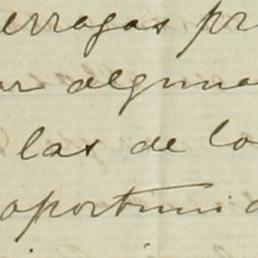 erragas pr
ar alguna
las de lo
oportuni